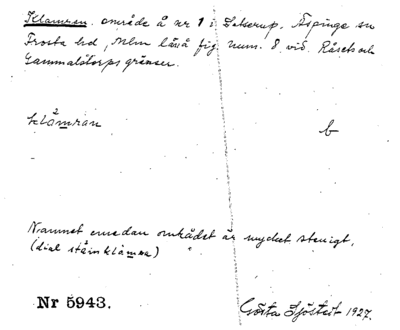 Klamran. område å nr 1 i Sätserup, Äspinge sn
Frosta hd, Mlm län å fig. num. 8 vid. Råsets och
Gammalstorps gränser.
klåmran b
Namnet emedan området är mycket stenigt,
(dial stäinklåmra)
Nr 5943. Gösta Sjöstedt 1927.